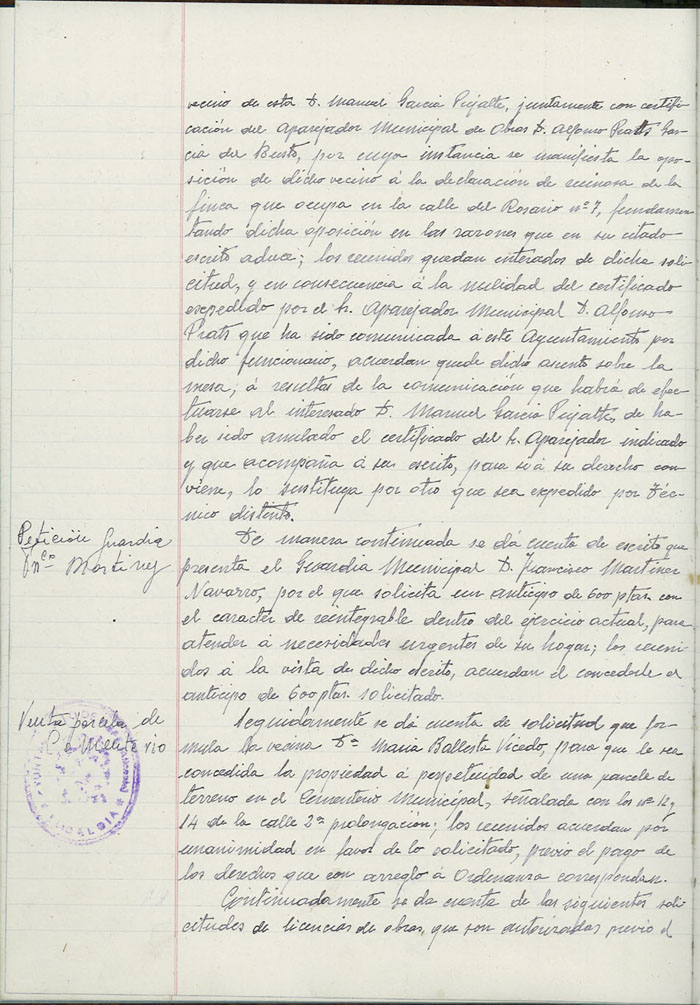 vecino de esta D. Manuel Garcia Pujalte, juntamente con certifi-
cación del Aparejador Municipal de Obras D. Alfonso Prats Gar-
cia del Busto, por cuya instancia se manifiesta la opo-
sición de dicho vecino á la declaración de ruinosa de la
finca que ocupa en la calle del Rosario nº 7, fundamen-
tando dicha oposición en las razones que en su citado
escrito aduce; los reunidos quedan interados de dicha soli-
citud, y en consecuencia á la nulidad del certificado
expedido por el Sr. Aparejador Municipal D. Alfonso
Prats que ha sido comunicada á este Ayuntamiento por
dicho funcionario, acuerdan quede dicho asunto sobre la
mesa; á resultas de la comunicación que habrá de efec-
tuarse al interesado D. Manuel Garcia Pujalte, de ha-
ber sido anulado el certificado del Sr. Aparejador indicado
y que acompaña á su escrito, para si á su derecho con-
viene, lo sustituya por otro que sea expedido por Téc-
nico distinto.
Petición Guardia
Martinez
De manera continuada se dá cuenta de escrito que
presenta el Guardia Municipal D. Francisco Martinez
Navarro, por el que solicita un anticipo de 600 ptas con
el caracter de reintegrable dentro del ejercicio actual, para
atender á necesidades urgentes de su hogar; los reuni-
dos á la vista de dicho escrito, acuerdan el concederle el
anticipo de 600 ptas. solicitado.
Venta parcela de
Cementerio
Seguidamente se dá cuenta de solicitud que for-
mula la vecina Dª Maria Ballesta Vicedo, para que le sea
concedida la propiedad á perpetuidad de una parcela de
terreno en el Cementerio Municipal, señalada con los nº 12 y
14 de la calle 2ª prolongación; los reunidos acuerdan por
unanimidad en favor de lo solicitado, previo el pago de
los derechos que con arreglo á Ordenanza correspondan.
Continuadamente se da cuenta de las siguientes soli-
citudes de licencias de obras, que son autorizadas previo el